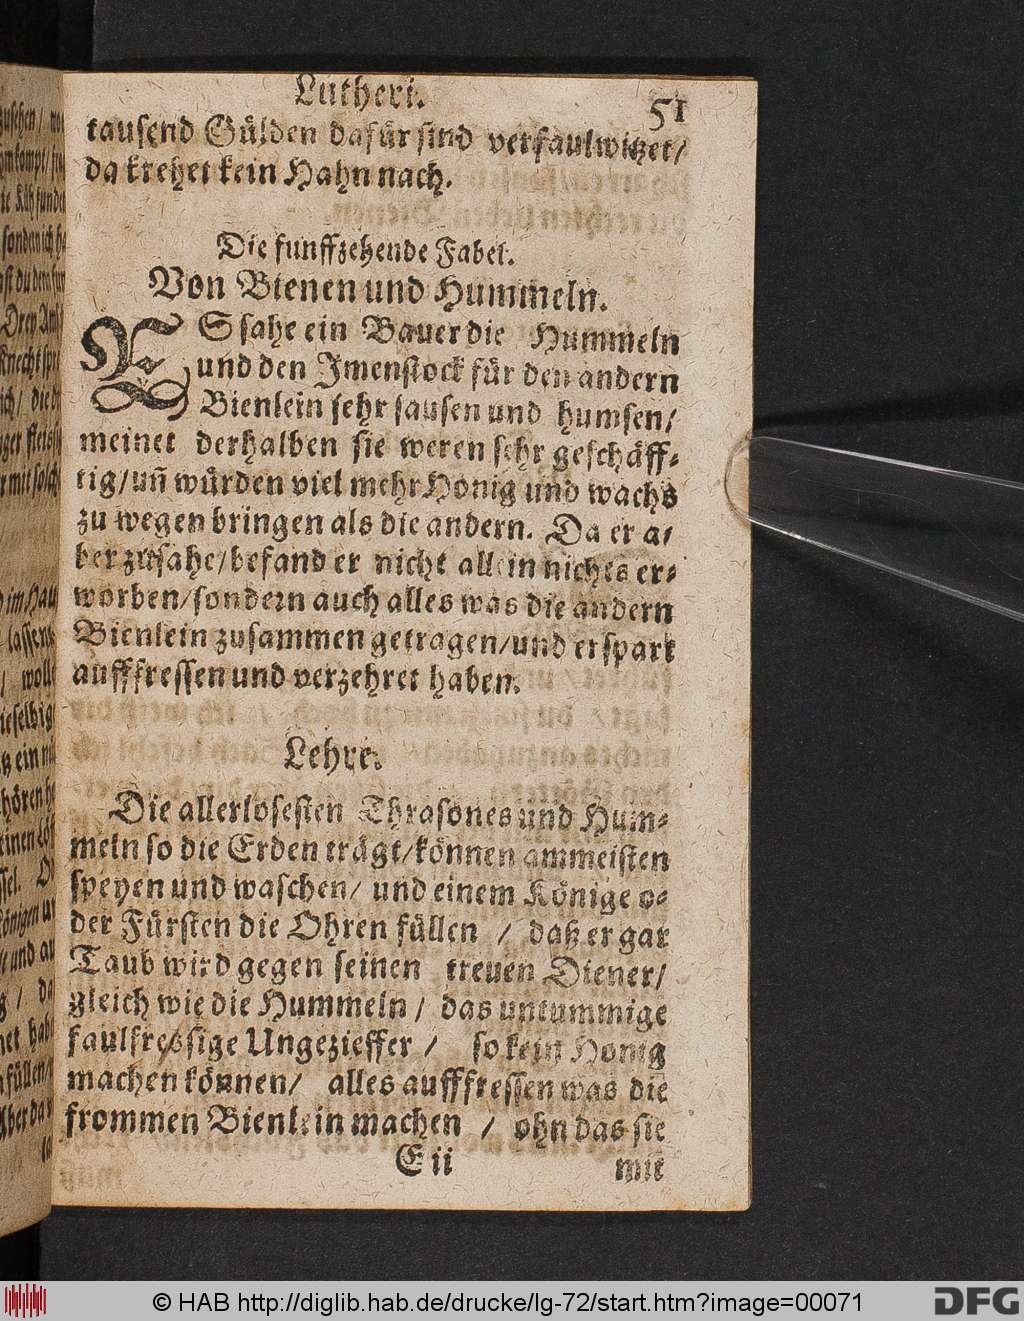 Lutheri.
51
tausend Gülden dafür sind verfaulwitzet/
da krehet kein Hahn nach.
Die funffzehende Fabel.
Von Bienen und Hummeln.
ES sahe ein Bauer die Hummeln
und den Imenstock für den andern
Bienlein sehr sausen und humsen/
meinet derhalben sie weren sehr geschäff-
tig/uñ würden viel mehr Honig und wachs
zu wegen bringen als die andern. Da er a-
ber zusahe/befand er nicht allein nichts er-
worben/sondern auch alles was die andern
Bienlein zusammen getragen/und erspart
aufffressen und verzehret haben.
Lehre.
Die allerlosesten Thrasones und Hum-
meln so die Erden trägt/können ammeisten
speyen und waschen/ und einem Könige o-
der Fürsten die Ohren füllen / daß er gar
Taub wird gegen seinen treuen Diener/
gleich wie die Hummeln / das untummige
faulfressige Ungezieffer / so kein Honig
machen können/ alles aufffressen was die
frommen Bienlein machen / ohn das sie
E ii
mit
© HAB http://diglib.hab.de/drucke/lg-72/start.htm?image=00071
DFG